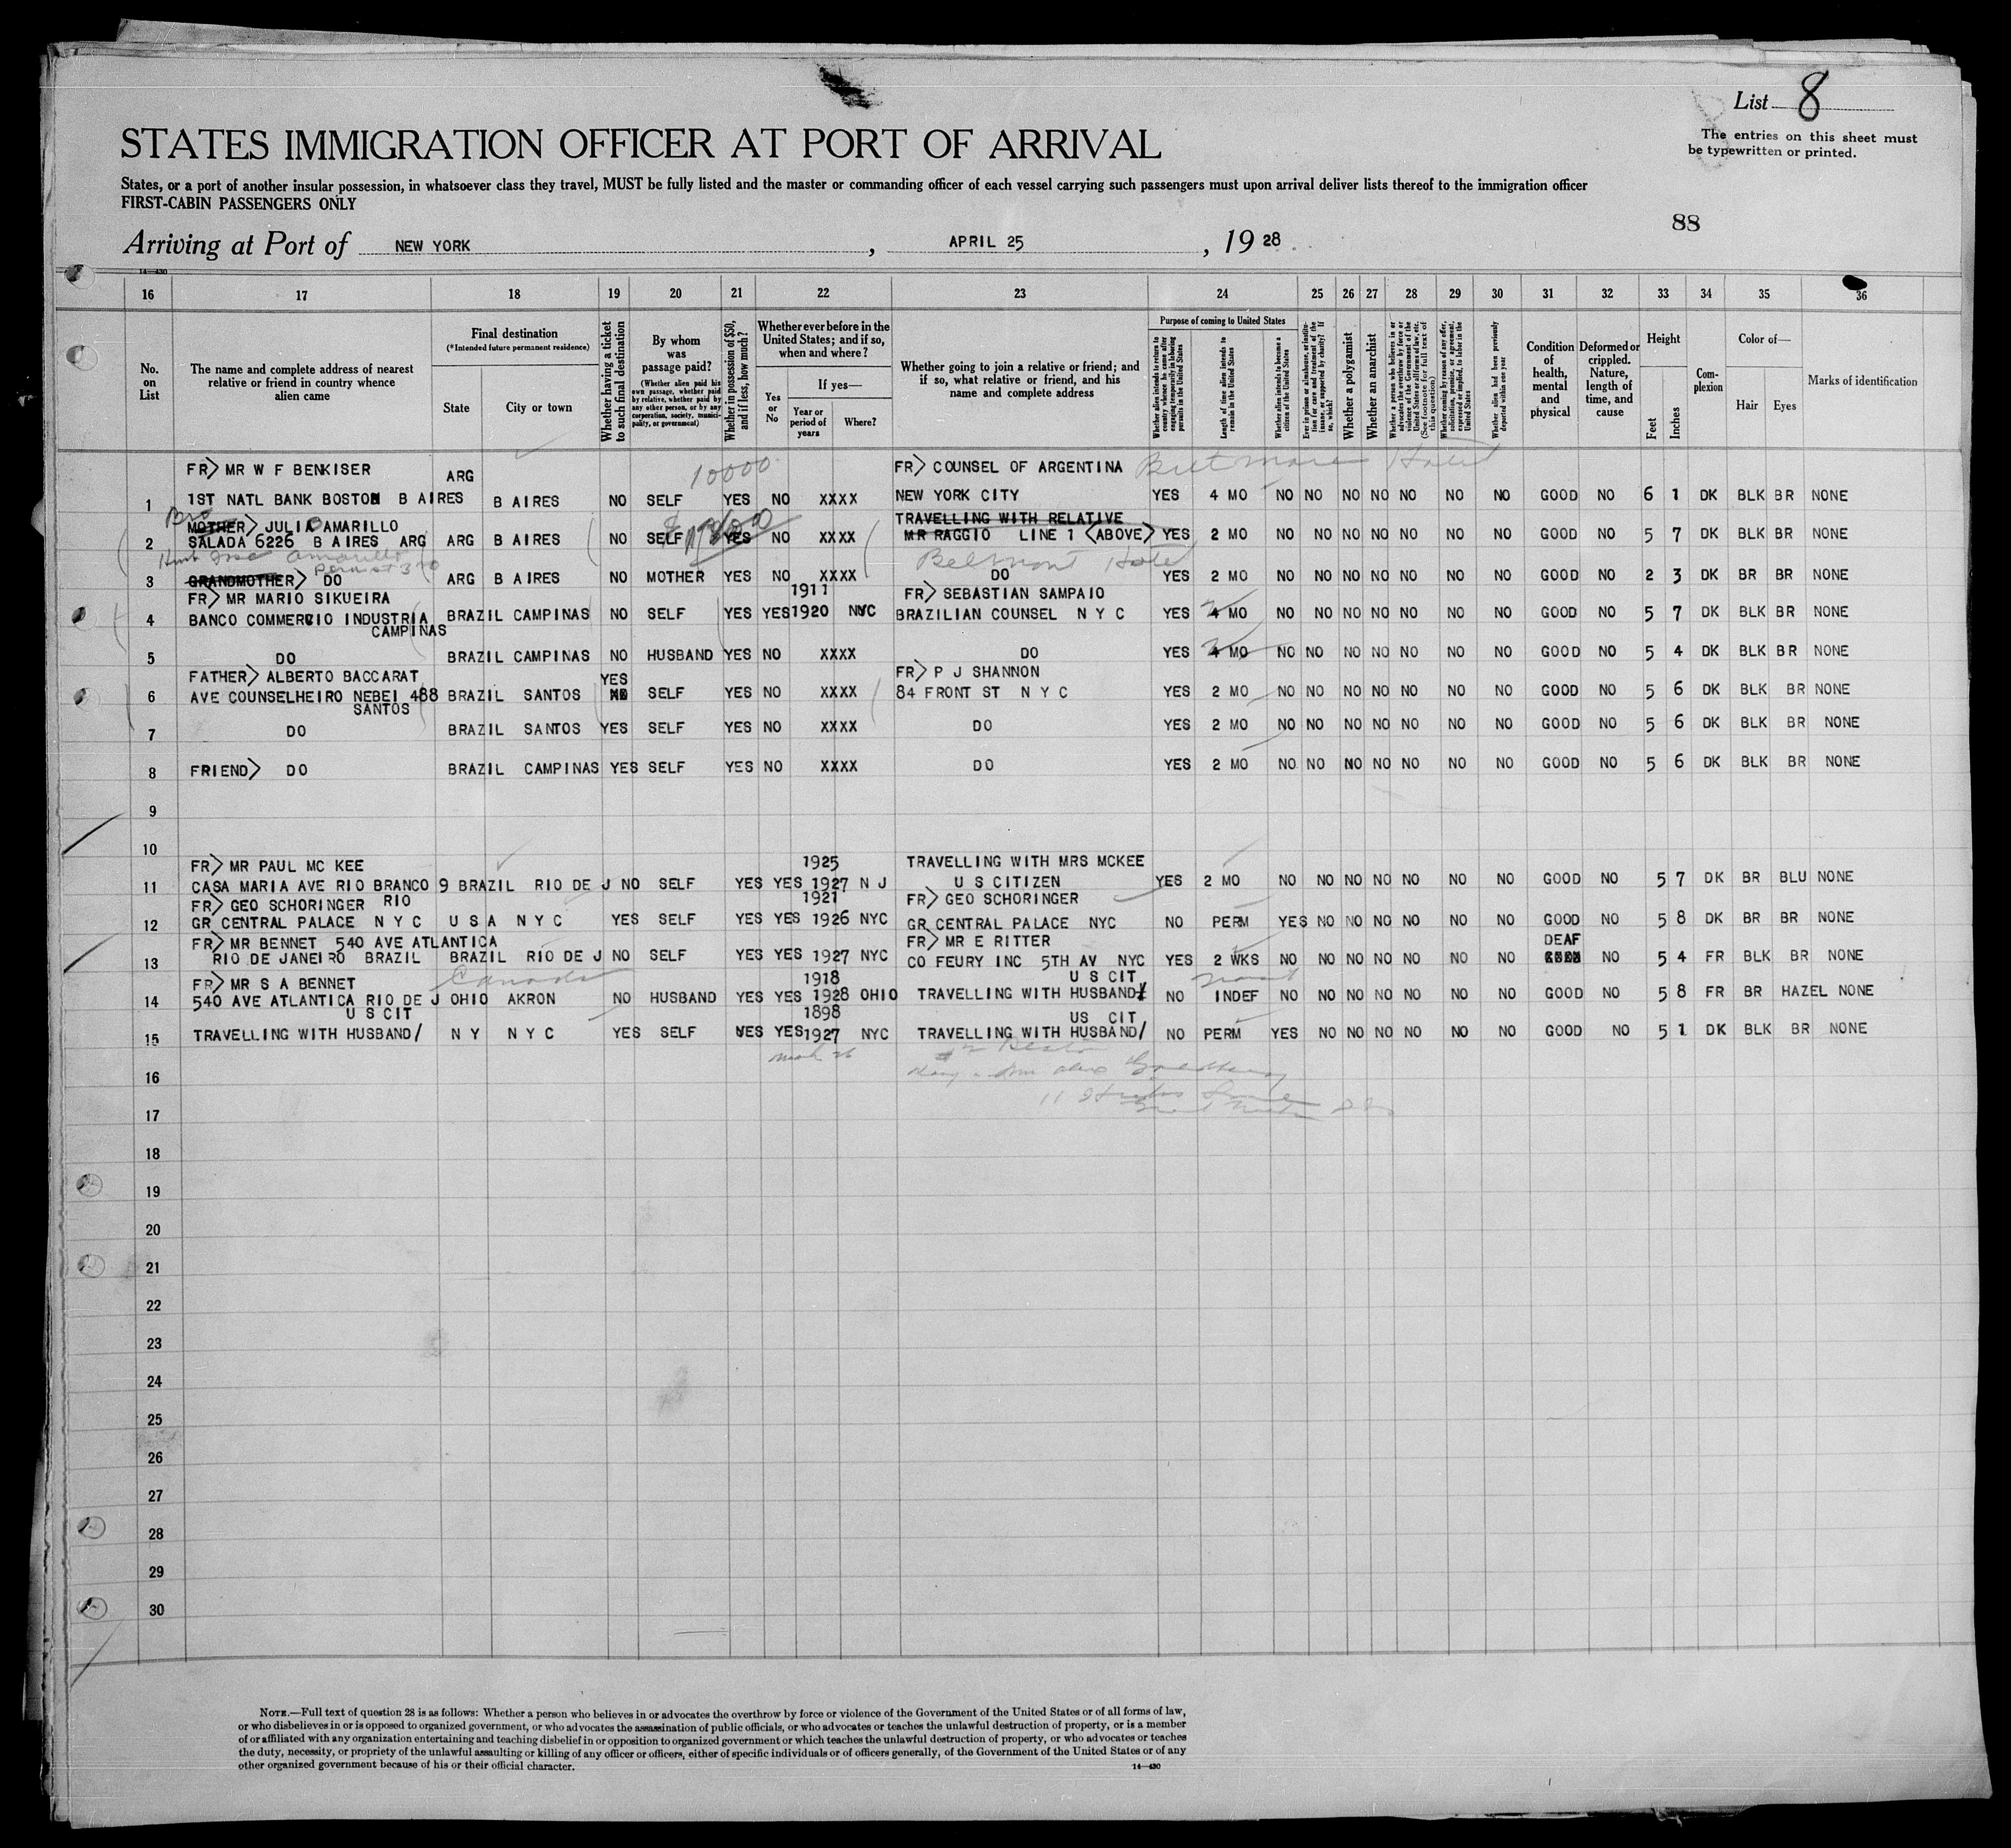 List 8
The entries on this sheet must
be typewritten or printed.
STATES IMMIGRATION OFFICER AT PORT OF ARRIVAL
States, or a port of another insular possession, in whatsoever class they travel, MUST be fully listed and the master or commanding officer of each vessel carrying such passengers must upon arrival deliver lists thereof to the immigration officer
FIRST-CABIN PASSENGERS ONLY
88
Arriving at Port of NEW YORK , APRIL 25 , 19 28
14—430
16 17 18 19 20 21 22 23 24 25 26 27 28 29 30 31 32 33 34 35 36
No. on List
The name and complete address of nearest relative or friend in country whence alien came
Final destination
(*Intended future permanent residence)
State
City or town
Whether having a ticket to such final destination
By whom was passage paid?
(Whether alien paid his own passage, whether paid by relative, whether paid by any other person, or by any corporation, society, municipality, or government)
Whether in possession of $50, and if less, how much?
Whether ever before in the United States; and if so, when and where?
Yes or No
If yes—
Year or period of years
Where?
Whether going to join a relative or friend; and if so, what relative or friend, and his name and complete address
Purpose of coming to United States
Whether alien intends to return to country whence he came after engaging temporarily in laboring pursuits in the United States
Length of time alien intends to remain in the United States
Whether alien intends to become a citizen of the United States
Ever in prison or almshouse, or institution for care and treatment of the insane, or supported by charity? If so, which?
Whether a polygamist
Whether an anarchist
Whether a person who believes in or advocates the overthrow by force or violence of the Government of the United States or all forms of law, etc. (See footnote for full text of this question)
Whether coming by reason of any offer, solicitation, promise, or agreement, expressed or implied, to labor in the United States
Whether alien had been previously deported within one year
Condition of health, mental and physical
Deformed or crippled. Nature, length of time, and cause
Height
Feet
Inches
Complexion
Color of—
Hair
Eyes
Marks of identification
FR> MR W F BENKISER ARG 10000 FR> COUNSEL OF ARGENTINA Biltmore Hotel
1 1ST NATL BANK BOSTON B AIRES B AIRES NO SELF YES NO XXXX NEW YORK CITY YES 4 MO NO NO NO NO NO NO NO GOOD NO 6 1 DK BLK BR NONE
Bro
MOTHER> JULIA AMARILLO TRAVELLING WITH RELATIVE
2 SALADA 6226 B AIRES ARG ARG B AIRES NO SELF YES NO XXXX MR RAGGIO LINE 1 <ABOVE> YES 2 MO NO NO NO NO NO NO NO GOOD NO 5 7 DK BLK BR NONE
Amarillo Belmont Hotel
3 GRANDMOTHER> DO ARG B AIRES NO MOTHER YES NO XXXX DO YES 2 MO NO NO NO NO NO NO NO GOOD NO 2 3 DK BR BR NONE
FR> MR MARIO SIKUEIRA 1911 FR> SEBASTIAN SAMPAIO
4 BANCO COMMERCIO INDUSTRIA BRAZIL CAMPINAS NO SELF YES YES 1920 NYC BRAZILIAN COUNSEL N Y C YES 4 MO NO NO NO NO NO NO NO GOOD NO 5 7 DK BLK BR NONE
CAMPINAS
5 DO BRAZIL CAMPINAS NO HUSBAND YES NO XXXX DO YES 4 MO NO NO NO NO NO NO NO GOOD NO 5 4 DK BLK BR NONE
FATHER> ALBERTO BACCARAT YES FR> P J SHANNON
6 AVE COUNSELHEIRO NEBEI 488 BRAZIL SANTOS NO SELF YES NO XXXX 84 FRONT ST N Y C YES 2 MO NO NO NO NO NO NO NO GOOD NO 5 6 DK BLK BR NONE
SANTOS
7 DO BRAZIL SANTOS YES SELF YES NO XXXX DO YES 2 MO NO NO NO NO NO NO NO GOOD NO 5 6 DK BLK BR NONE
8 FRIEND> DO BRAZIL CAMPINAS YES SELF YES NO XXXX DO YES 2 MO NO NO NO NO NO NO NO GOOD NO 5 6 DK BLK BR NONE
9
10
FR> MR PAUL MC KEE 1925 TRAVELLING WITH MRS MCKEE
11 CASA MARIA AVE RIO BRANCO 9 BRAZIL RIO DE J NO SELF YES YES 1927 N J U S CITIZEN YES 2 MO NO NO NO NO NO NO NO GOOD NO 5 7 DK BR BLU NONE
FR> GEO SCHORINGER RIO 1921 FR> GEO SCHORINGER
12 GR CENTRAL PALACE N Y C U S A N Y C YES SELF YES YES 1926 NYC GR CENTRAL PALACE NYC NO PERM YES NO NO NO NO NO NO GOOD NO 5 8 DK BR BR NONE
FR> MR BENNET 540 AVE ATLANTICA FR> MR E RITTER DEAF
13 RIO DE JANEIRO BRAZIL BRAZIL RIO DE J NO SELF YES YES 1927 NYC CO FEURY INC 5TH AV NYC YES 2 WKS NO NO NO NO NO NO NO GOOD NO 5 4 FR BLK BR NONE
FR> MR S A BENNET Canada 1918 U S CIT
14 540 AVE ATLANTICA RIO DE J OHIO AKRON NO HUSBAND YES YES 1928 OHIO TRAVELLING WITH HUSBAND/ NO INDEF NO NO NO NO NO NO NO GOOD NO 5 8 FR BR HAZEL NONE
U S CIT 1898 US CIT
15 TRAVELLING WITH HUSBAND/ N Y N Y C YES SELF YES YES 1927 NYC TRAVELLING WITH HUSBAND/ NO PERM YES NO NO NO NO NO NO GOOD NO 5 1 DK BLK BR NONE
16
17
18
19
20
21
22
23
24
25
26
27
28
29
30
NOTE.—Full text of question 28 is as follows: Whether a person who believes in or advocates the overthrow by force or violence of the Government of the United States or of all forms of law,
or who disbelieves in or is opposed to organized government, or who advocates the assassination of public officials, or who advocates or teaches the unlawful destruction of property, or is a member
of or affiliated with any organization entertaining and teaching disbelief in or opposition to organized government or which teaches the unlawful destruction of property, or who advocates or teaches
the duty, necessity, or propriety of the unlawful assaulting or killing of any officer or officers, either of specific individuals or of officers generally, of the Government of the United States or of any
other organized government because of his or their official character.
14—430